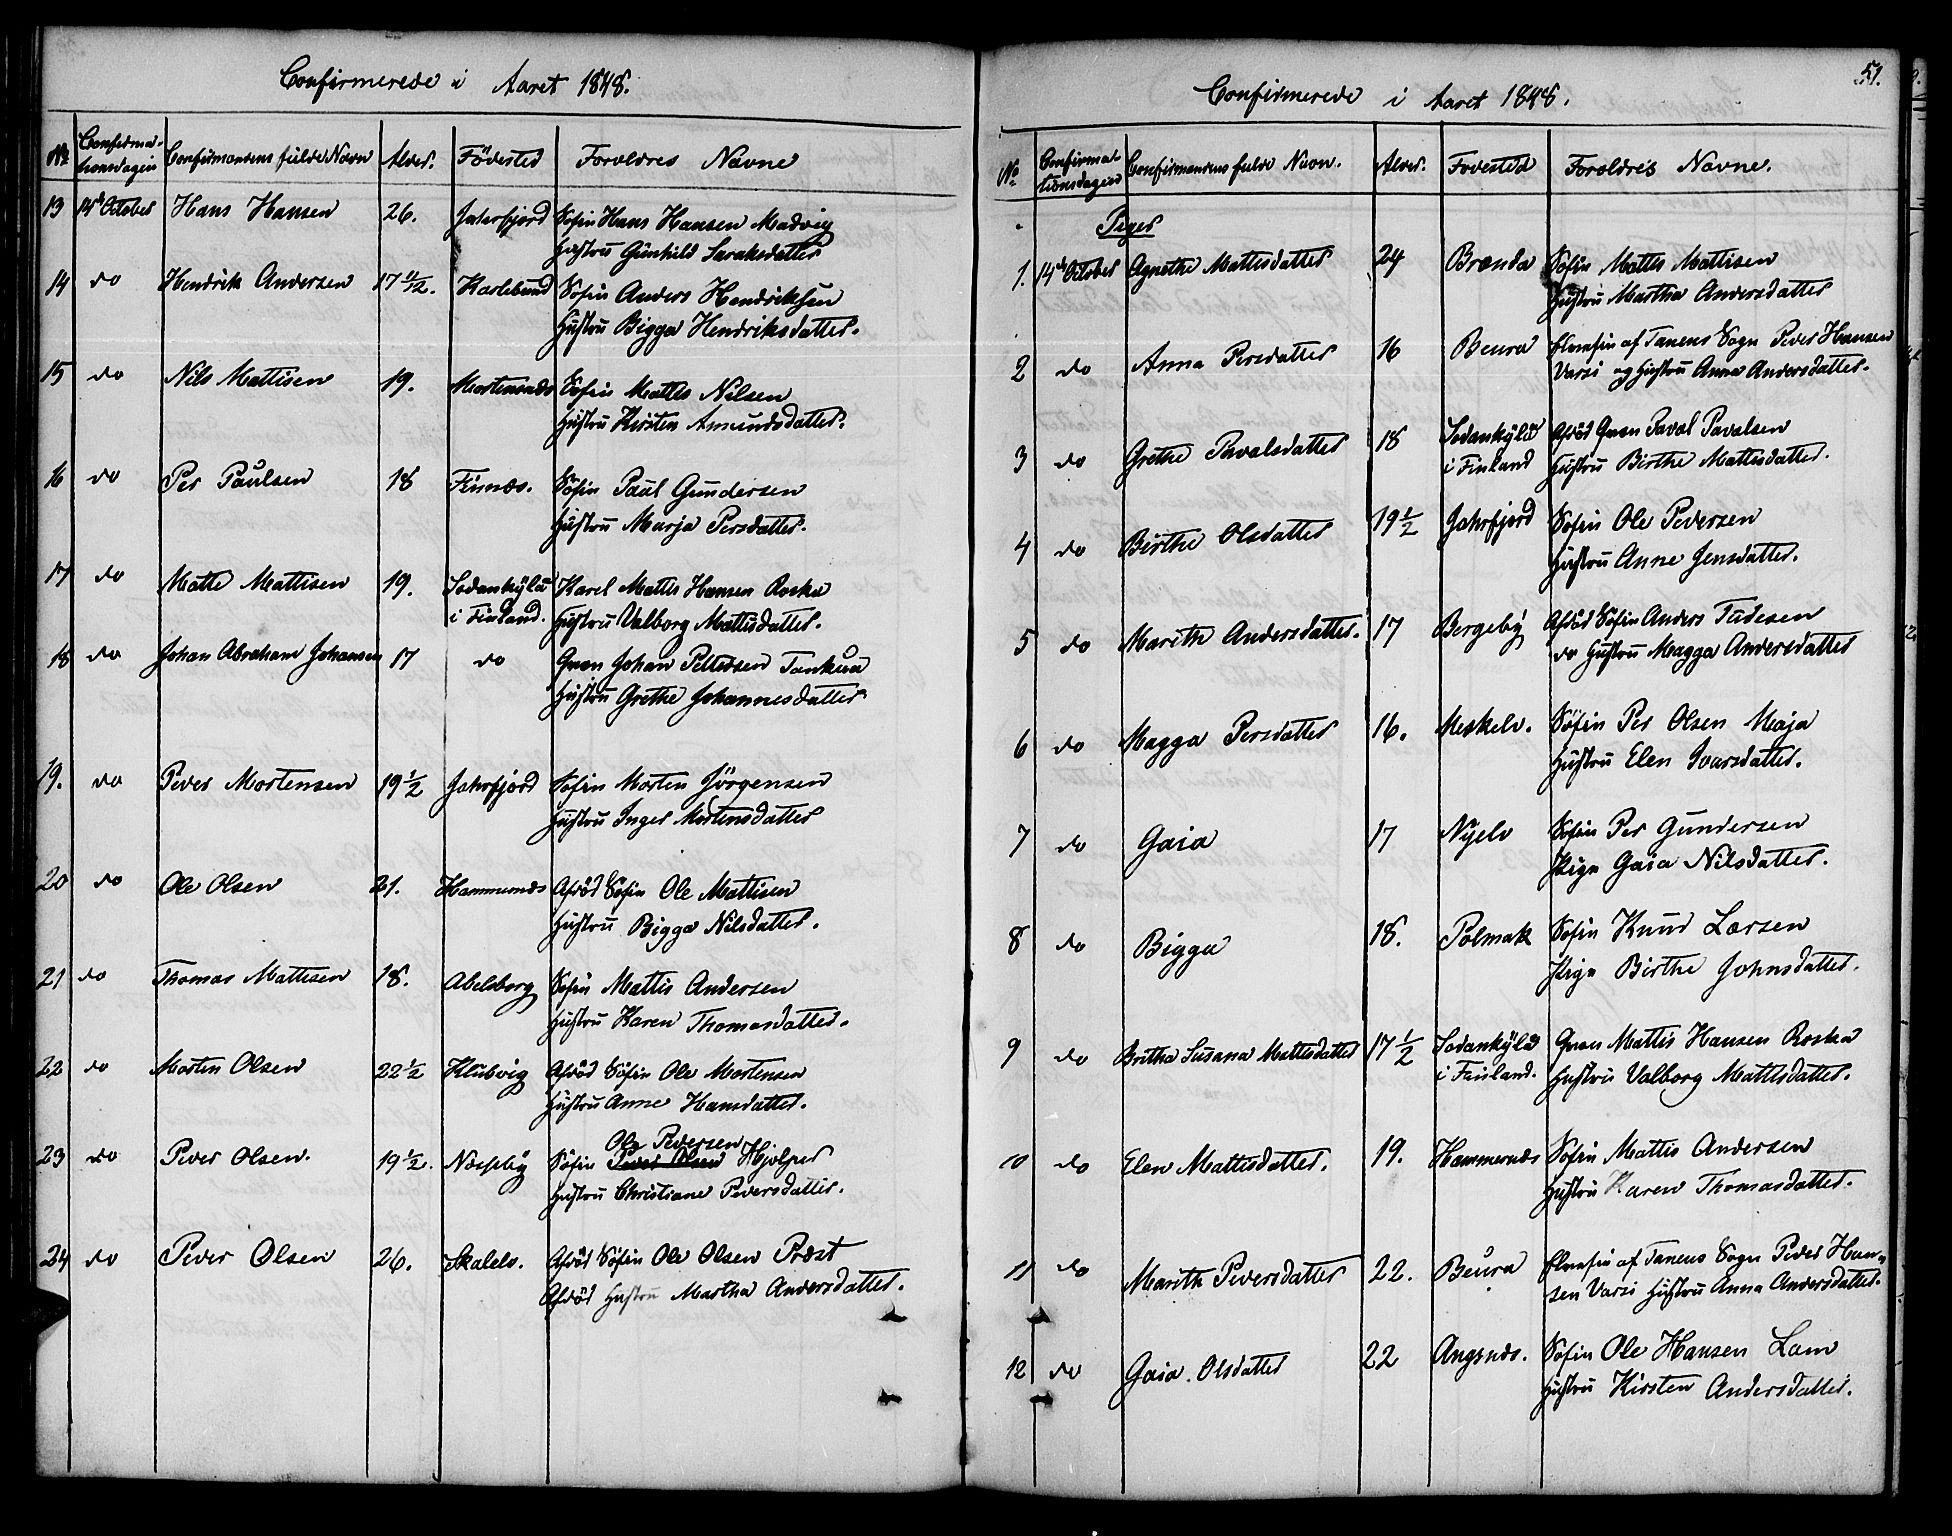 Confirmerede i Aaret 1848.
No Confirma-tionsdagen Confirmandens fulde Navn Alder. Födested Foreldres Navne
13 14de October Hans Hansen 26. Jakrfjord Söfin Hans Hansen Madvig
Hustru Gunhild Saraksdatter
14 do Hendrik Andersen 17 1/2. Karlebund Söfin Anders Hendriksen
Hustru Bigga Hendriksdatter.
15 do Nils Mattisen 19. Mortensnæs Söfin Mattis Nilsen
Hustru Kirsten Amundsdatter.
16 do Per Paulsen 18 Finnæs. Söfin Paul Gundersen
Hustru Marja Persdatter.
17 do Matte Mattisen 19. Sodankylä Karel Mattis Hansen Roska
i Finland. Hustru Valborg Mattisdatter.
18 do Johan Abraham Johansen 17 do Qvæn Johan Pettersen Tankua
Hustru Grethe Johannesdatter
19. do Peder Mortensen 19 1/2 Jakrfjord Söfin Morten Jörgensen
Hustru Inger Mortensdatter
20 do Ole Olsen 21. Hammernæs Afdöd Söfin Ole Mattisen
Hustru Bigga Nilsdatter.
21 do Thomas Mattisen 18. Abelsborg Söfin Mattis Andersen
Hustru Karen Thomasdatter.
22 do Morten Olsen 22 1/2 Klubvig Afdöd Söfin Ole Mortensen
Hustru Anne Hansdatter.
Ole Pedersen
23 do Peder Olsen. 19 1/2. Næsseby Söfin Peder Olsen Hjelper
Hustru Christiane Pedersdatter.
24 do Peder Olsen 26. Skalelv. Afdöd Söfin Ole Olsen Præst
Afdöd Hustru Martha Andersdatter.
51.
Confirmerede i Aaret 1848.
No Confirma-tionsdagen Confirmandens fulde Navn. Alder. Fodested Foreldres Navne.
Piger
1. 14de October Agnethe Mattisdatter 24 Brænda Söfin Mattis Mattisen
Hustru Martha Andersdatter
2 do Anna Persdatter 16 Beura Elvefin af Tanens Sogn Peder Hansen
Varsi og Hustru Anna Andersdatter.
3 do Grethe Pavalsdatter 18 Sodankylä Afdöd Qvæn Paval Pavalsen
i Finland Hustru Birthe Mattisdatter.
4 do Birthe Olsdatter 19 1/2 Jakrfjord Söfin Ole Pedersen
Hustru Anne Jensdatter.
5 do Marith Andersdatter. 17 Bergeby Afdöd Söfin Anders Fudesen
do Hustru Magga Andersdatter
6 do Magga Persdatter 16. Meskelv. Söfin Per Olsen Maja
Hustru Elen Ivarsdatter.
7 do Gaia 17 Nyelv Söfin Per Gundersen
Pige Gaia Nilsdatter.
8 do Bigga 18. Polmak Söfin Knud Larsen
Pige Birthe Johnsdatter.
9 do Britha Susana Mattisdatter 17 1/2 Sodankylä Qvæn Mattis Hansen Roska
i Finland. Hustru Valborg Mattisdatter.
10 do Elen Mattisdatter. 19. Hammernæs Söfin Mattis Andersen
Hustru Karen Thomasdatter.
11 do Marith Pedersdatter 22. Beura Elvefin af Tanens Sogn Peder Han-
sen Varsi Hustru Anna Andersdatter.
12 do Gaia Olsdatter 22 Angsnæs. Söfin Ole Hansen Lam
Hustru Kirsten Andersdatter.